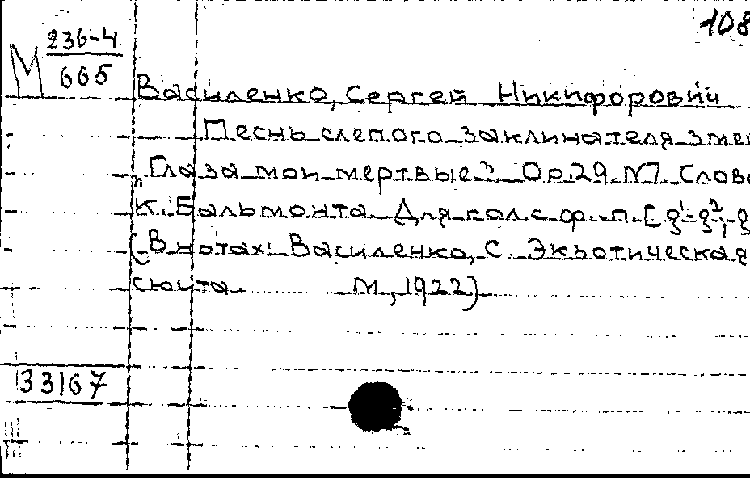 108
М 236-4
665
Василенко, Сергей Никифорович
Песнь слепого заклинателя змей
„Глаза мои мертвые". Op.29 N7 Слова
К. Бальмонта. Для гол. с ф.-п. [g¹-g²,
(В нотах: Василенко, С. Экзотическая
сюита. М, 1922)
33167